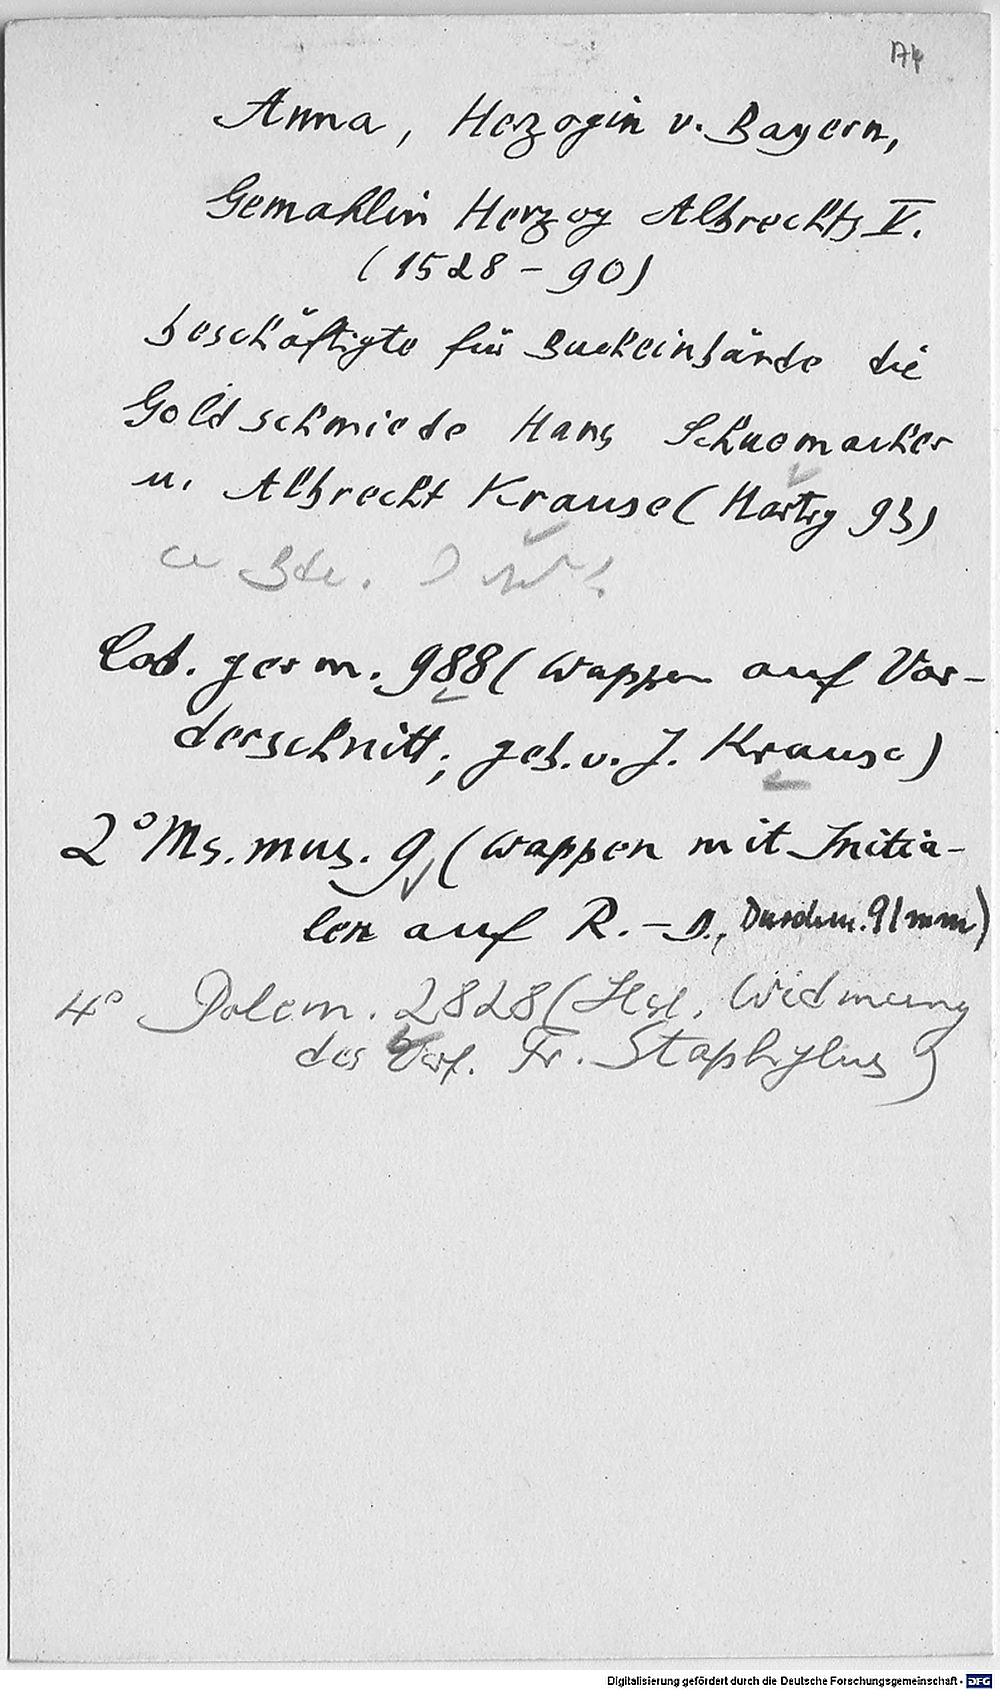 Anna, Herzogin v. Bayern,
Gemahlin Herzog Albrechts V.
(1528-90)
beschäftigte für Bucheinbände die
Goldschmiede Hans Schuemacher
u. Albrecht Krause (Hartig 93)
Bde.
Cod. germ. 988 (Wappen auf Vor-
derschnitt, geb. v. J. Krause)
2° Ms. mus. 9 (Wappen mit Initia-
len auf R.-D., Durchm. 91 mm)
4° Polem. 2828 (Hsl. Widmung
des Verf. Fr. Staphylus)
Digitalisierung gefördert durch die Deutsche Forschungsgemeinschaft - DFG